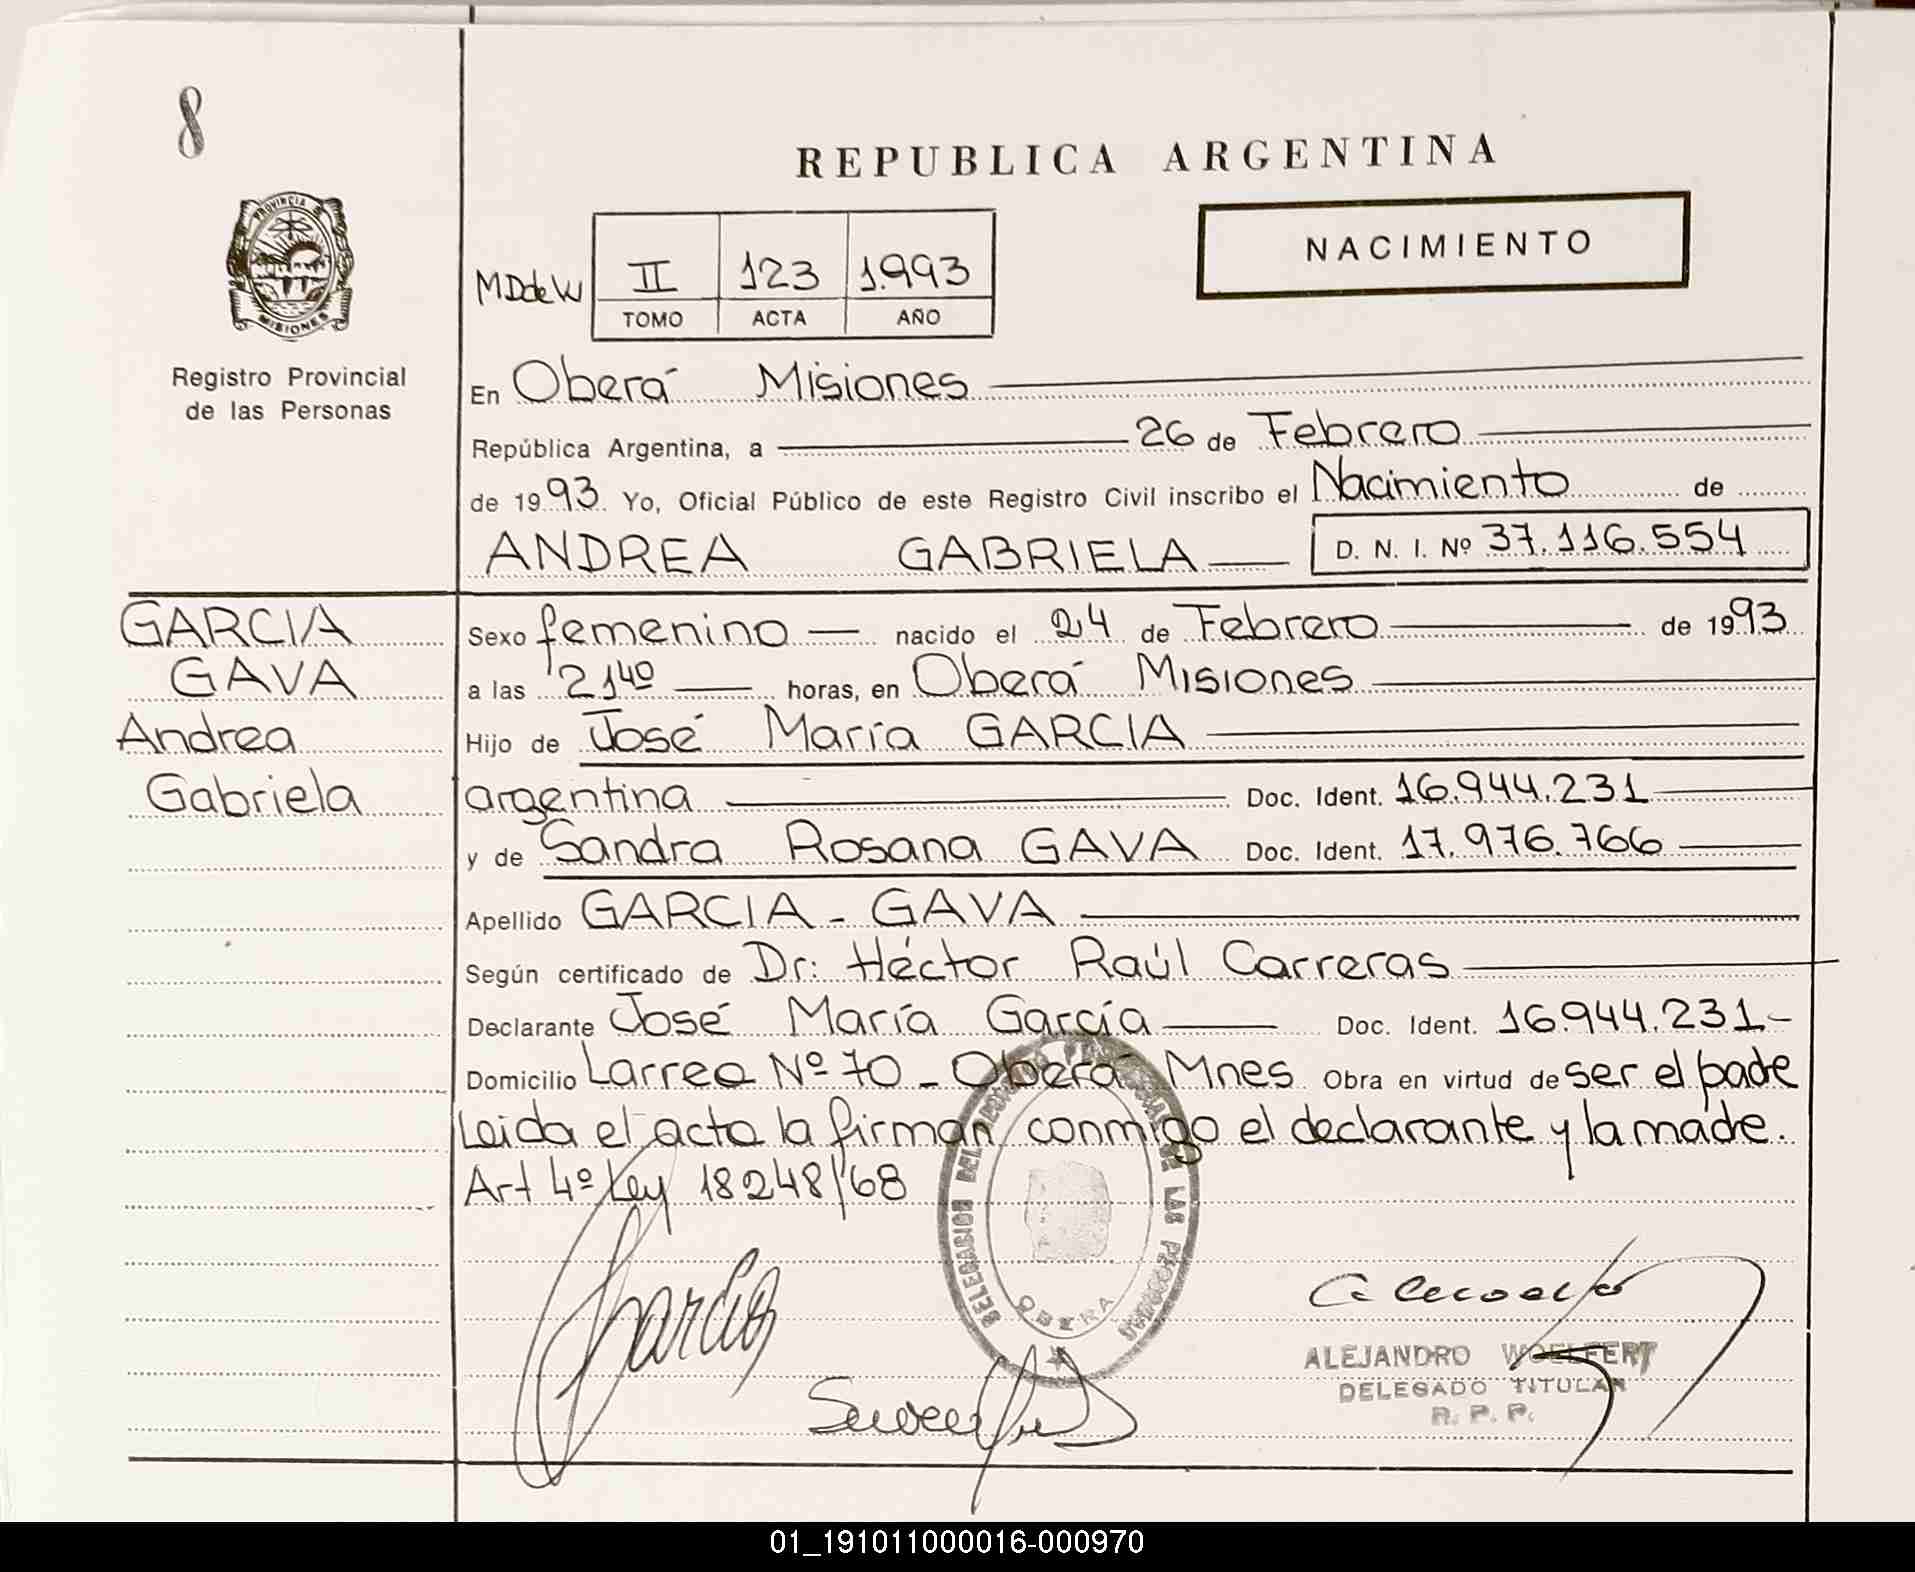 8
REPUBLICA ARGENTINA
NACIMIENTO
PROVINCIA D
MISIONES
Registro Provincial
de las Personas
MDdeW II 123 1.993
TOMO ACTA AÑO
En Oberá Misiones
República Argentina, a 26 de Febrero
de 1993. Yo, Oficial Público de este Registro Civil inscribo el Nacimiento de
ANDREA GABRIELA D. N. I. Nº 37.116.554
GARCIA
GAVA
Andrea
Gabriela
Sexo femenino nacido el 24 de Febrero de 1993
a las 2140 horas, en Oberá Misiones
Hijo de José María GARCIA
argentina Doc. Ident. 16.944.231
y de Sandra Rosana GAVA Doc. Ident. 17.976.766
Apellido GARCIA - GAVA
Según certificado de Dr: Héctor Raúl Carreras
Declarante José María García Doc. Ident. 16.944.231-
Domicilio Larrea Nº 70 - Oberá Mnes Obra en virtud de ser el padre
Leida el acta la firman conmigo el declarante y la madre.
Art 4º Ley 18248/68
DELEGACION DEL LAS PERSONAS
OBERA
ALEJANDRO WOELFERT
DELEGADO TITULAR
R. P. P.
01_191011000016-000970